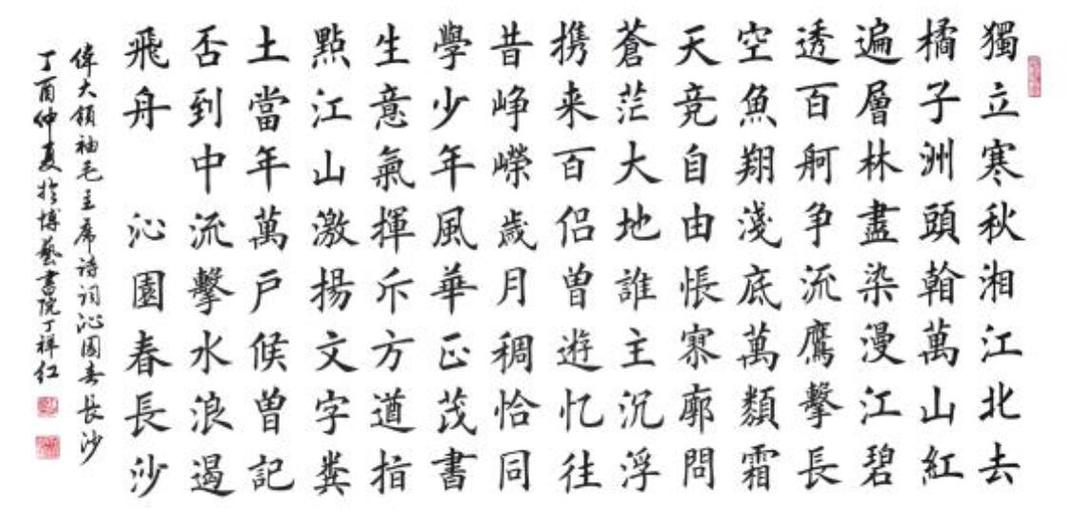 獨立寒秋湘江北去
橘子洲頭翰萬山紅
遍層林盡染漫江碧
透百舸争流鷹擊長
空魚翔淺底萬類霜
天竞自由悵寥廓問
蒼茫大地誰主沉浮
携来百侣曾遊忆往
昔峥嶸歲月稠恰同
學少年風華正茂書
生意氣揮斥方遒指
點江山激揚文字糞
土當年萬户候曾記
否到中流擊水浪遏
飛舟 沁園春長沙
偉大領袖毛主席诗词沁園春長沙
丁酉仲夏於博藝書院丁祥红